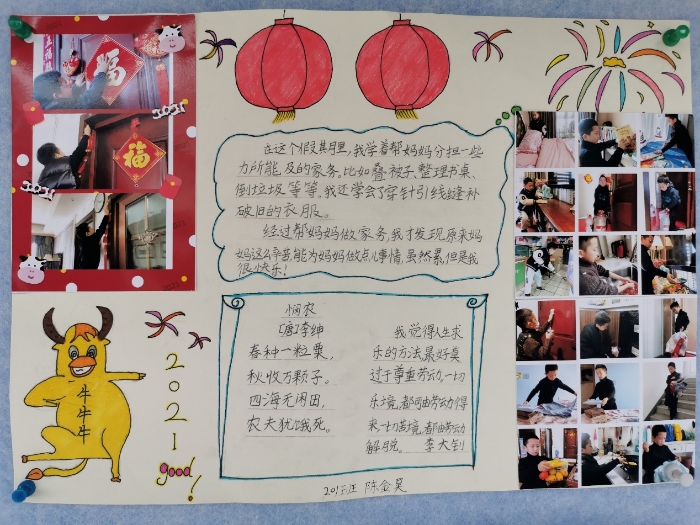 五福临
福
2021
福
2021
2021
在这个假期里,我学着帮妈妈分担一些
力所能及的家务,比如叠被子,整理书桌
倒垃圾等等,我还学会了穿针引线缝补
破旧的衣服。
经过帮妈妈做家务,我才发现原来妈
妈这么辛苦能为妈妈做点儿事情,虽然累,但是我
很快乐!
牛
牛
牛
2021
good!
悯农
[唐]李绅
春种一粒粟,
秋收万颗子。
四海无闲田,
农夫犹饿死。
我觉得人生求
乐的方法,最好莫
过于尊重劳动,一切
乐境,都可由劳动得
来一切苦境,都由劳动
解脱。 李大钊
201班 陈金昊